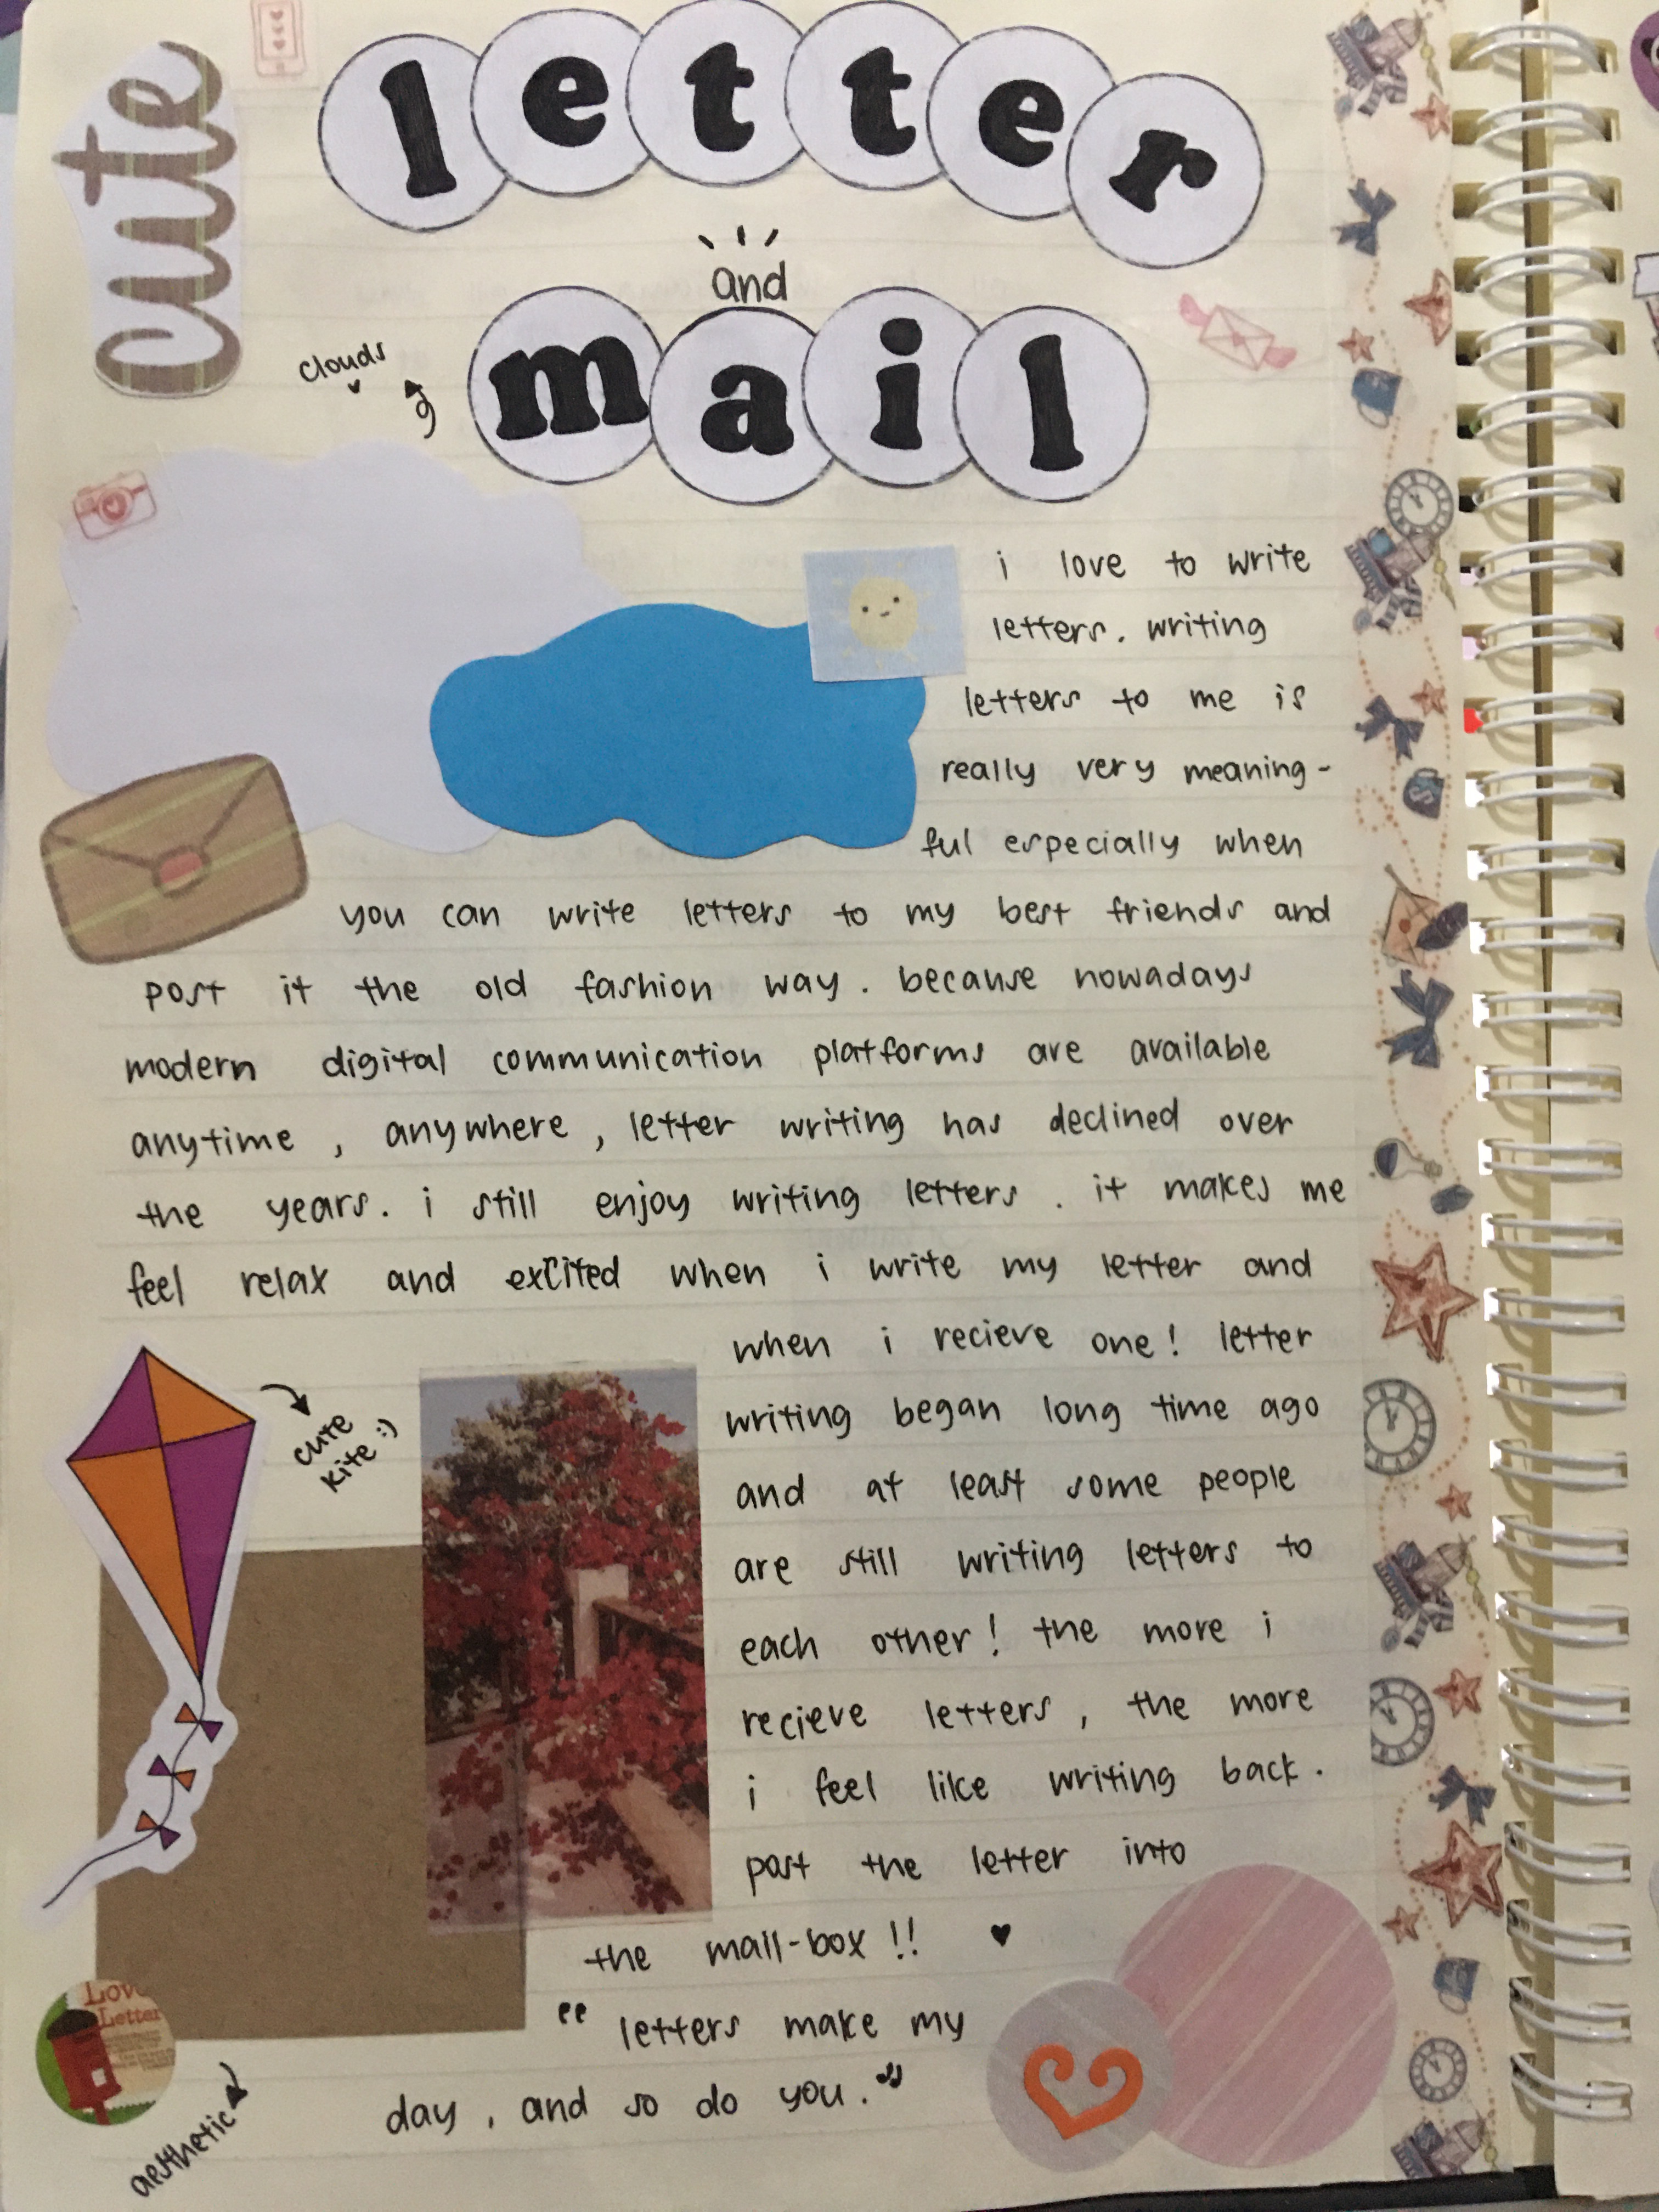 cute
letter
and
mail
clouds
i love to write
letters. writing
letters to me is
really very meaning-
ful especially when
you can write letters to my best friends and
post it the old fashion way. because nowadays
modern digital communication platforms are available
anytime, anywhere, letter writing has declined over
the years. i still enjoy writing letters. it makes me
feel relax and excited when i write my letter and
when i recieve one! letter
writing began long time ago
and at least some people
are still writing letters to
each other! the more i
recieve letters, the more
i feel like writing back.
post the letter into
the mail-box!! ♥
"letters make my
day, and so do you."
cute
kite :)
Love
Letter
aesthetic